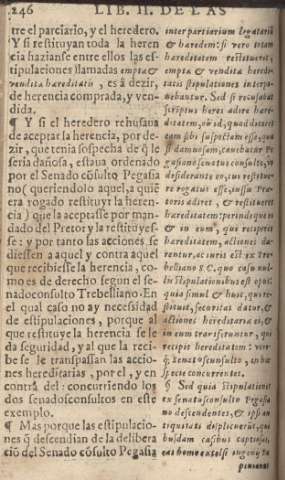 246 LIB. II. DE LAS
tre el parciario, y el heredero.
Y si restituyan toda la heren
cia hazianse entre ellos las es-
tipulaciones llamadas empta &
vendita hæreditatis, es à dezir,
de herencia comprada, y ven-
dida.
¶ Y si el heredero rehusaua
de aceptar la herencia, por de-
zir, que tenia sospecha de q̃ le
seria dañosa, estaua ordenado
por el Senado cõsulto Pegasia
no (queriendolo aquel, a quiẽ
era rogado restituyr la heren-
cia) que la aceptasse por man-
dado del Pretor y la restituyes-
se: y por tanto las acciones se
diessen a aquel y contra aquel
que recibiesse la herencia, co-
mo es de derecho segun el se-
nadoconsulto Trebelliano. En
el qual caso no ay necessidad
de estipulaciones, porque al
que restituye la herencia se le
da seguridad, y al que la reci-
be se le transpassan las accio-
nes hereditarias, por el, y en
contra del: concurriendo los
dos senadosconsultos en este
exemplo.
¶ Mas porque las estipulacio-
nes q̃ descendian de la delibera
ciõ del Senado cõsulto Pegasia
inter partiarium legatariũ
& hæredem: si vero totam
hæreditatem restitueret,
empta & vendita heredi-
tatis stipulationes interpo-
nebantur. Sed si recusabat
scriptus heres adire hære-
ditatem, ob id, quod diceret
eam sibi suspectam esse, qua
si damnosam, cauebatur Pe
gasiano senatus consulto, vt
desiderante eo, cui restitue-
re rogatus esset, iussu Præ-
toris adiret, & restitueret
hæreditatem: perinde que ei
& in eum, qui reciperet
hæreditatem, actiones da-
rentur, ac iuris est ex Tre-
belliano S.C. quo casu nul-
lis stipulationibus est opus:
quia simul & huic, qui re-
stituit, securitas datur, &
actiones hæreditariæ ei, &
in eum transferuntur, qui
recipit hæreditatem:
senatusconsulto, in hac
specie concurrentes.
§. Sed quia stipulationes
ex senatusconsulto Pegasia
no descendentes, & ipsi an
tiquitati displicuerũt, qui
busdam casibus captiosas
eas homo excelsi ingenij Pa
pinianus